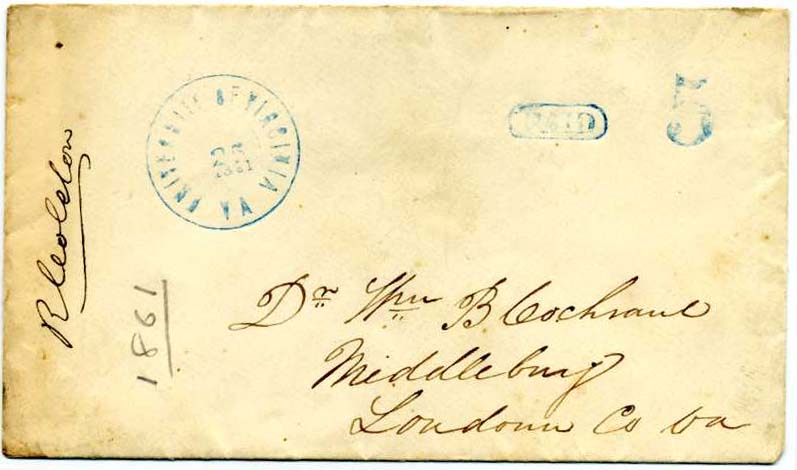 UNIVERSITY OF VIRGINIA VA
1861
PAID
5
Dr Wm B Cochrane
Middleburg
Loudoun Co Va
1861